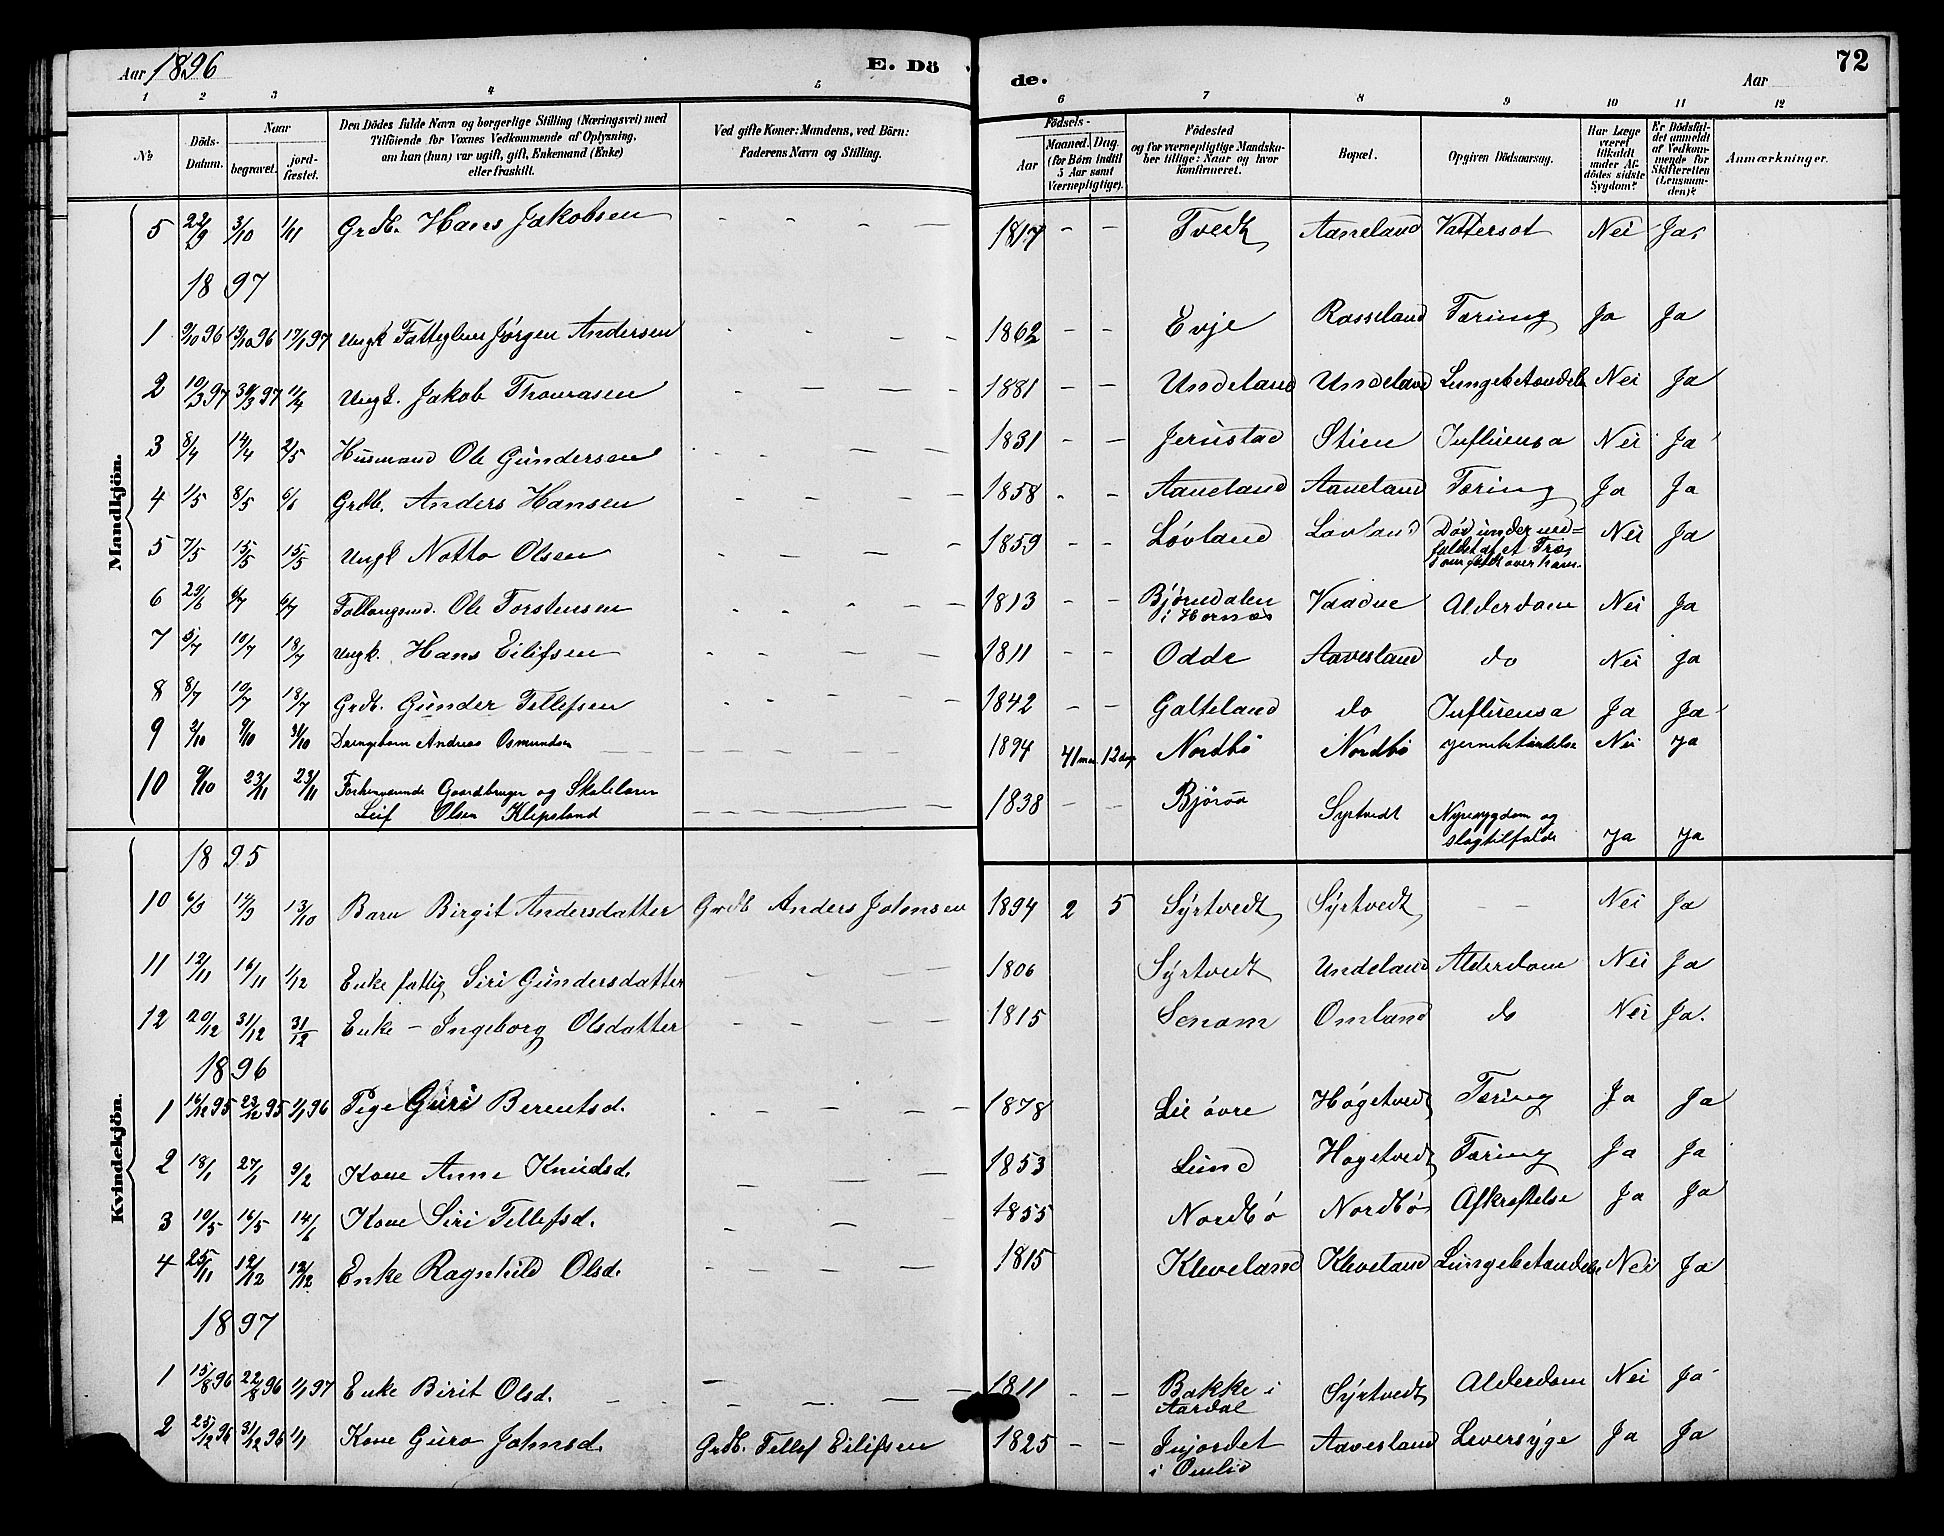 Aar 1896 E. Dö de. Aar 72
1 2 3 4 5 6 7 8 9 10 11 12
No
Döds-Datum.
Naar
begravet.
jord-fæstet.
Den Dödes fulde Navn og borgerlige Stilling (Næringsvei) med
Tilföiende for Voxnes Vedkommende af Oplysning,
om han (hun) var ugift, gift, Enkemand (Enke)
eller fraskilt.
Ved gifte Koner: Mandens, ved Börn:
Faderens Navn og Stilling.
Födsels-
Aar
Maaned. Dag.
(for Börn indtil
5 Aar samt
Værnepligtige).
Födested
og for værnepligtige Mandska-
ber tillige: Naar og hvor
konfirmeret.
Bopæl.
Opgiven Dödsaarsag.
Har Læge
været
tilkaldt
under Af-
dödes sidste
Sygdom?
Er Dödsfal-
det anmeldt
af Vedkom-
mende for
Skifteretten
(Lensman-
den)?
Anmærkninger.
Mandkjön.
5 22/9 3/10 1/11 Grdb. Hans Jakobsen - - - - 1817 - - Tvedt Aaneland Vattersot Nei Ja.
1897
1 9/10 96 13/10 96 17/1 97 Ungk Fattiglem Jörgen Andersen - - - - 1862 - - Evje Rosseland Tæring Ja Ja
2 19/3 97 30/3 97 1/4 Ungk. Jakob Thomasen - - - - 1881 - - Undeland Undeland Lungebetændelse Nei Ja
3 8/4 14/4 2/5 Husmand Ole Gundersen - - - - 1831 - - Jerustad Stien Influensa Nei Ja
4 1/5 8/5 6/6 Grdb. Anders Hansen - - - - 1858 - - Aaneland Aaneland Tæring Ja Ja
5 7/5 15/5 15/5 Ungk Notto Olsen - - - - 1859 - - Lövland Lövland Död under ned-
faldet af et Træ
som faldt over ham. Nei Ja
6 29/6 6/7 6/7 Ole Torstensen - - - - 1813 - - Björndalen
i Hornnes Vaadne Alderdom Nei Ja
7 5/7 10/7 18/7 Ungk. Hans Eilifsen - - - - 1811 - - Odde Aavesland do Nei Ja
8 8/7 10/7 18/7 Grdb. Gunder Tellefsen - - - - 1842 - - Galteland do Influensa Ja Ja
9 2/10 9/10 31/10 Drengebarn Andreas Osmundsen - - - - 1894 12 dge Nordbö Nordbö Nei Ja
10 9/10 23/11 23/11 Forhenværende Gaardbruger og Skolelærer
Leif Olsen Klepsland - - - - 1838 - - Björaa Syrtvedt Nyresygdom og
slagtilfælde Ja Ja
Kvindekjön.
1895
10 6/9 14/9 13/10 Barn Birgit Andersdatter Grdb Anders Johnsen 1894 2 5 Syrtvedt Syrtvedt - - Nei Ja
11 12/11 16/11 1/12 Enke fattig Siri Gundersdatter - - - 1806 Syrtvedt Undeland Alderdom Nei Ja
12 20/12 31/12 31/12 Enke - Ingeborg Olsdatter - - - - 1815 Senum Omland do Nei Ja.
1896
1 16/12 95 23/12 95 1/1 96 Pige Guri Berentsd. - - - - 1878 Lie övre Högetvedt Tæring Ja Ja
2 18/1 27/1 9/2 Kone Anne Knudsd. - - - 1853 Lund Högetvedt Tæring Ja Ja
3 10/5 16/5 14/6 Kone Siri Tellefsd. - - - 1855 Nordbö Nordbö Afkræftelse Ja Ja
4 25/11 12/12 12/12 Enke Ragnhild Olsd. - - - - 1815 Kleveland Kleveland Lungebetændelse Nei Ja
1897
1 15/8 96 22/8 96 1/1 97 Enke Birit Olsd. - - - - 1811 - - Bakke i
Aardal Syrtvedt Alderdom Nei Ja
2 25/12 96 31/12 96 1/1 Kone Guro Johnsd. Grdb. Tellef Eilifsen 1825 - - Injordet
i Omlid Aavesland Leversyge Ja Ja